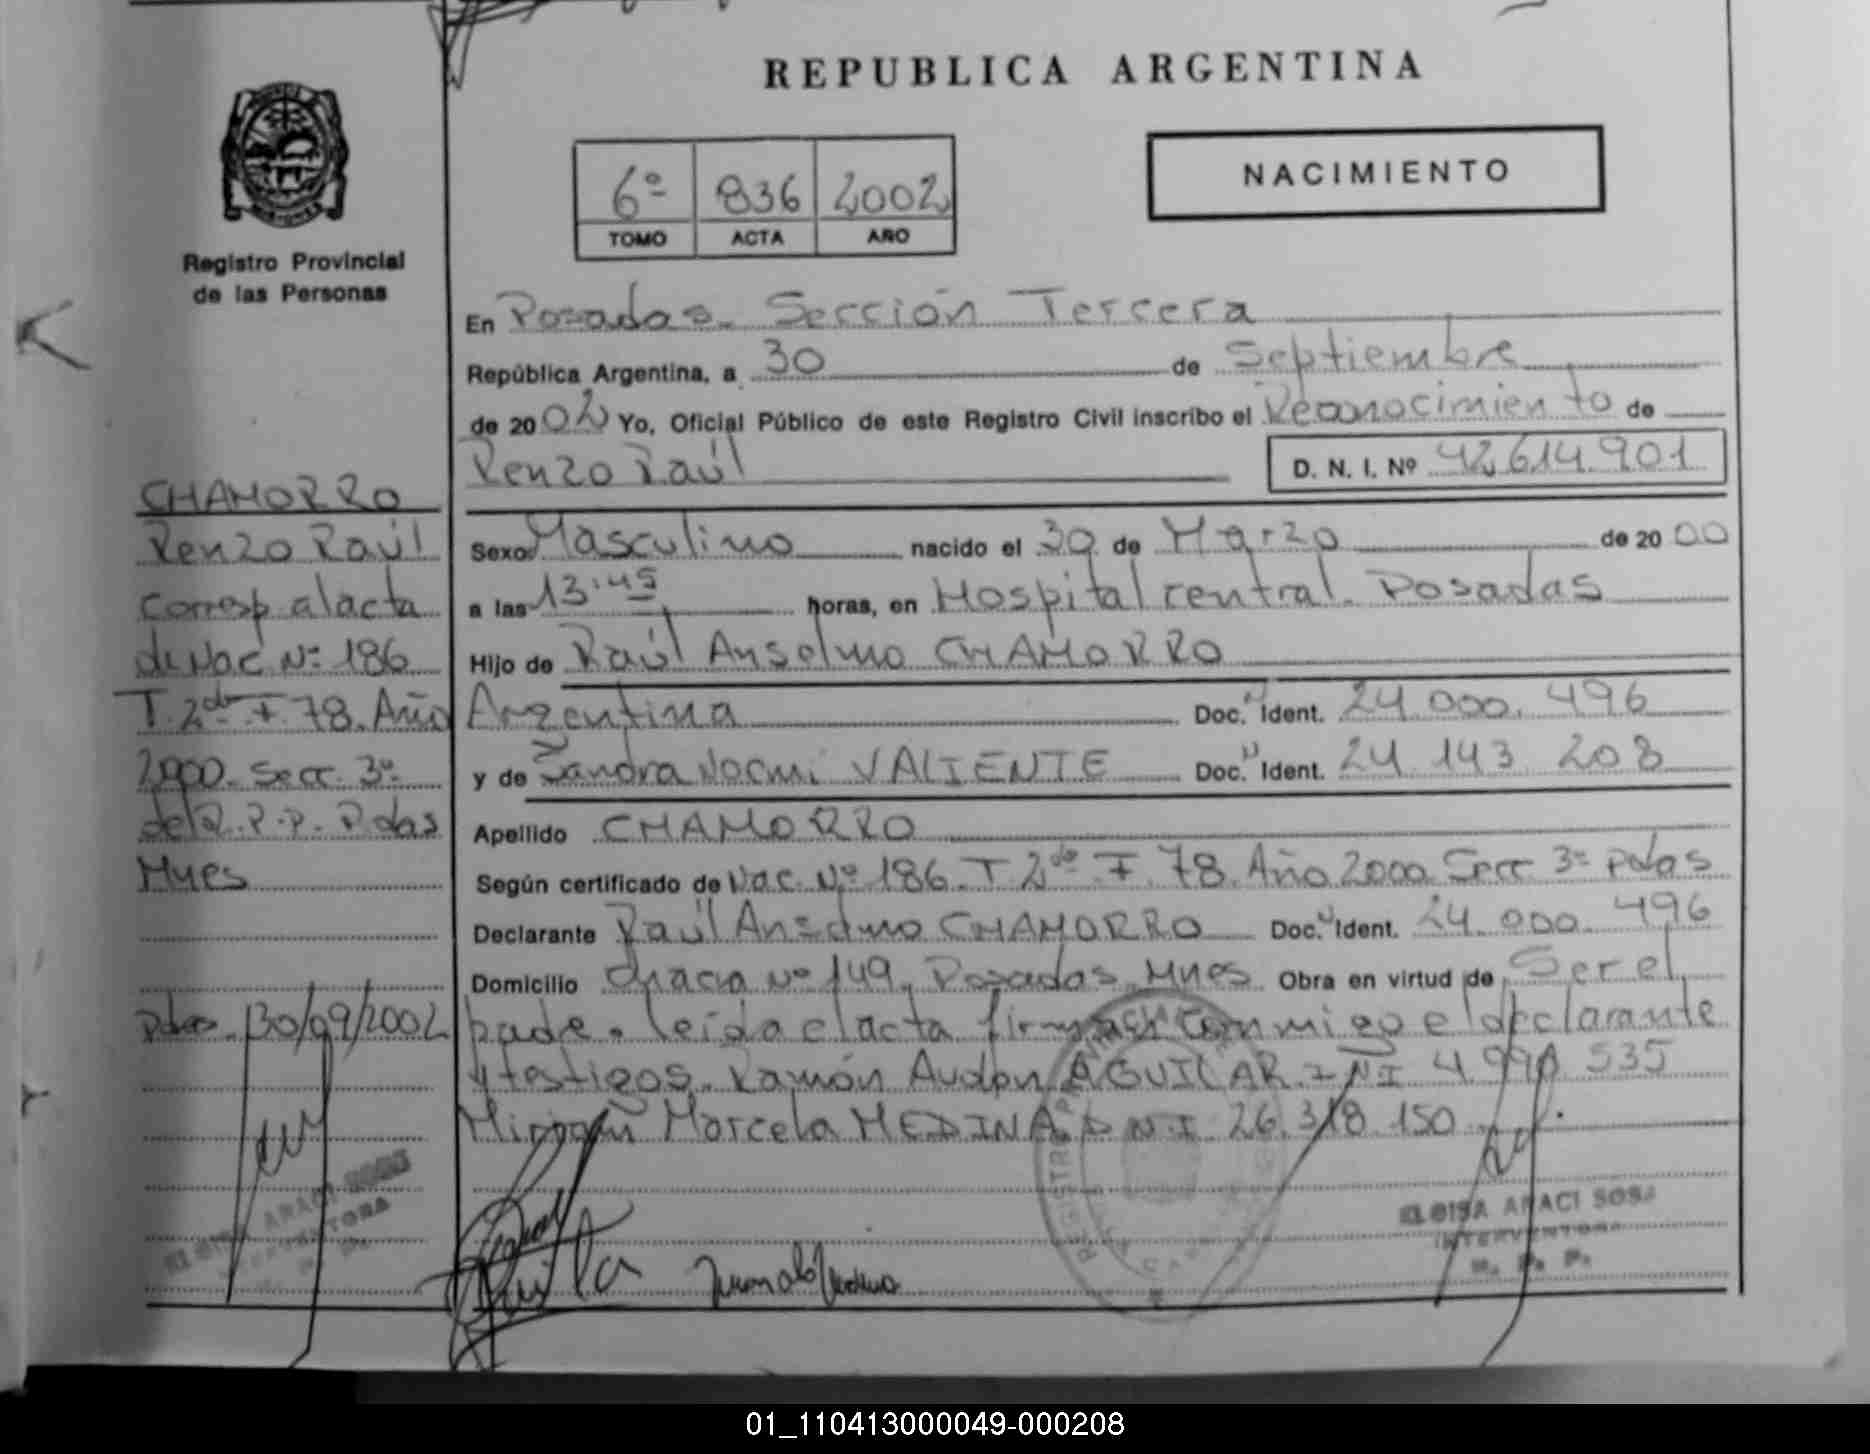 REPUBLICA ARGENTINA
NACIMIENTO
6º 836 2002
TOMO ACTA AÑO
Registro Provincial
de las Personas
En Posadas. Sección Tercera
República Argentina, a 30 de Septiembre
de 2002 Yo, Oficial Público de este Registro Civil inscribo el Reconocimiento de
Renzo Raúl D. N. I. Nº 42.614.901
Sexo Masculino nacido el 30 de Marzo de 2000
a las 13:45 horas, en Hospital central. Posadas
Hijo de Raúl Anselmo CHAMORRO
Argentina Doc. Ident. 24.000.496
y de Sandra Noemi VALIENTE Doc. Ident. 24.143.208
Apellido CHAMORRO
Según certificado de Nac. Nº 186. T. 2do F. 78. Año 2000 Secc. 3º Pdas
Declarante Raúl Anselmo CHAMORRO Doc. Ident. 24.000.496
Domicilio Chacra Nº 149. Posadas. Mnes Obra en virtud de Ser el
padre. leída el acta firman conmigo el declarante
y testigos. Ramón Audon AGUILAR DNI 4.990.535
Miriam Marcela MEDINA D.N.I. 26.318.150
CHAMORRO
Renzo Raúl
corresp al acta
de Nac Nº 186
T. 2do F. 78. Año
2000. Secc. 3º
del R.P.P. Pdas
Mnes
Pdas. 30/09/2002
ELOISA ARACI SOSA
INTERVENTORA
R. P. P.
ELOISA ARACI SOSA
INTERVENTORA
R. P. P.
01_110413000049-000208